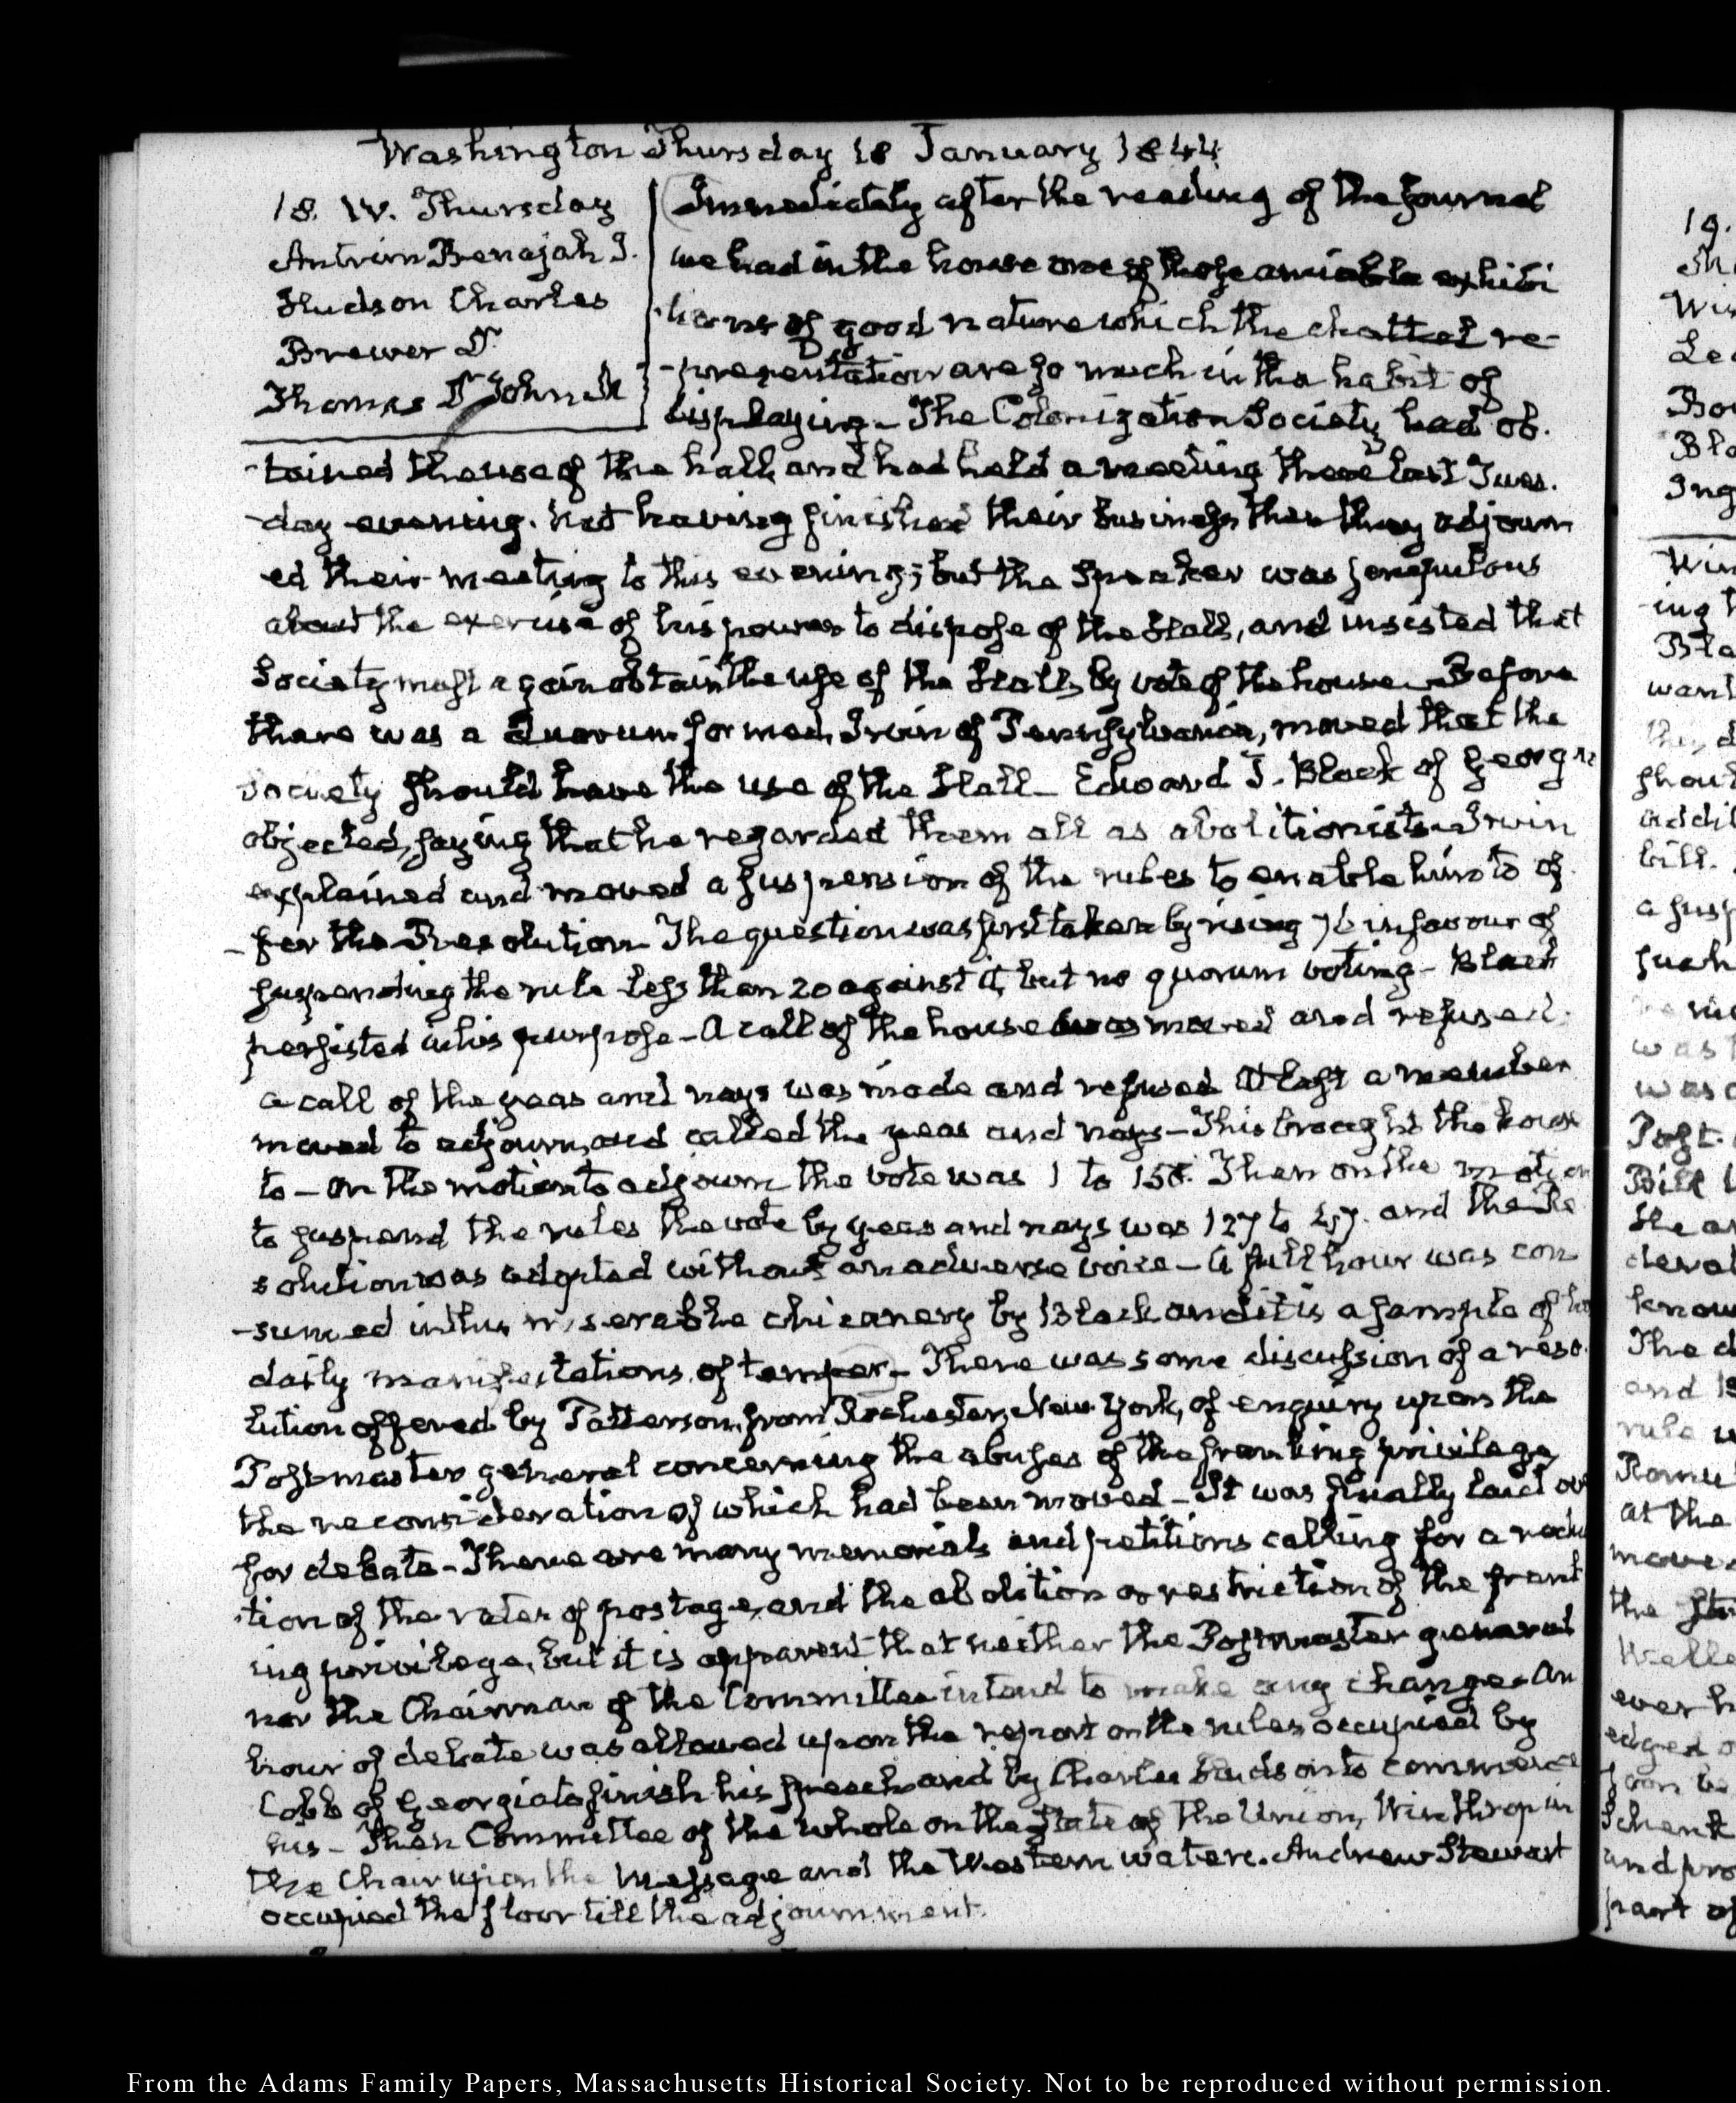 Washington Thursday 18 January 1844
18. IV. Thursday
Antrim Benajah J.
Hudson Charles
Brewer D.
Thomas D John
Immediately after the reading of the Journal
we had in the house one of those amiable exhibi
-tions of good nature which the chattel re-
-presentation are so much in the habit of
displaying- The Colonization Society had ob.
-tained the use of the hall, and had held a meeting there last Tues.
-day evening. Not having finished their business then they adjourn
ed their meeting to this evening; but the Speaker was scrupulous
about the exercise of his power to dispose of the Hall, and insisted that
Society must again obtain the use of the Hall, by vote of the house. Before
there was a Quorum formed, Irwin of Pennsylvania, moved that the
Society should have the use of the Hall- Edward J. Black of Georgia
objected, saying that he regarded them all as abolitionists- Irwin
explained and moved a suspension of the rules to enable him to of.
-fer the Resolution- The question was first taken by rising 76 in favour of
suspending the rule less than 20 against it, but no quorum voting- Black
persisted in his purpose- A call of the house was moved and refused.
a call of the yeas and nays was made and refused At last a member
moved to adjourn, and called the yeas and nays- This brought the house
to- On the motion to adjourn the vote was 1 to 158. Then on the motion
to suspend the rules the vote by yeas and nays was 127 to and the Re
solution was adopted without an adverse voice- A full hour was con
-sumed in this miserable chicanery by Black and it is a sample of his
daily manifestations of temper- There was some discussion of a reso.
lution offered by Patterson, from Rochester, New York, of enquiry upon the
Postmaster general concerning the abuses of the franking privilege,
the reconsideration of which had been moved- It was finally laid over
for debate- There are many memorials and petitions calling for a reduc
-tion of the rates of postage, and the abolition or restriction of the frank
ing privilege, but it is apparent that neither the Postmaster general
nor the Chairman of the Committee intend to make any change- An
hour of debate was allowed upon the report on the rules occupied by
Cobb of Georgia to finish his speech and by Charles Hudson to commence
his- Then Committee of the whole on the State of the Union, Winthrop in
the Chair upon the Message and the Western waters. Andrew Stewart
occupied the floor till the adjournment.
From the Adams Family Papers, Massachusetts Historical Society. Not to be reproduced without permission.